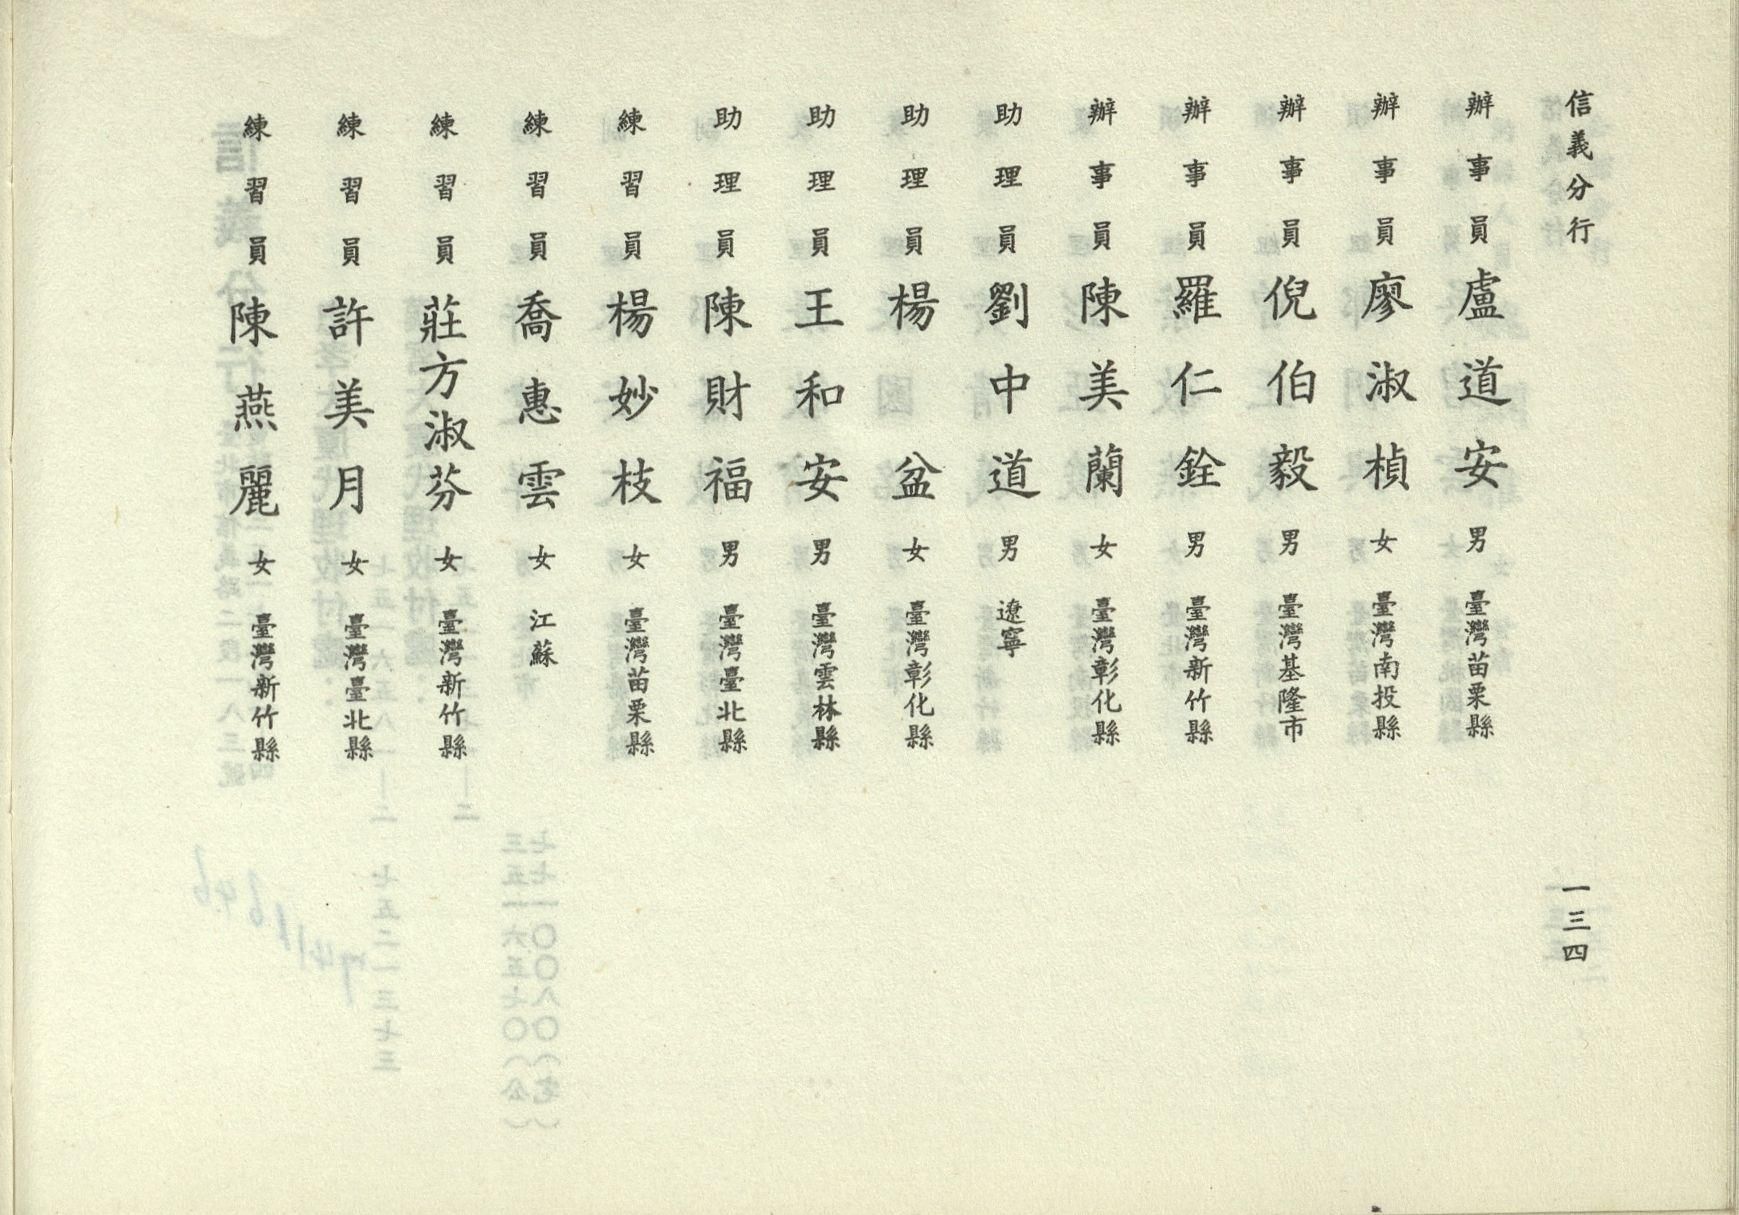 信義分行
一三四
辦事員 盧道安 男 臺灣苗栗縣
辦事員 廖淑楨 女 臺灣南投縣
辦事員 倪伯毅 男 臺灣基隆市
辦事員 羅仁銓 男 臺灣新竹縣
辦事員 陳美蘭 女 臺灣彰化縣
助理員 劉中道 男 遼寧
助理員 楊盆 女 臺灣彰化縣
助理員 王和安 男 臺灣雲林縣
助理員 陳財福 男 臺灣臺北縣
練習員 楊妙枝 女 臺灣苗栗縣
練習員 喬惠雲 女 江蘇
練習員 莊方淑芬 女 臺灣新竹縣
練習員 許美月 女 臺灣臺北縣
練習員 陳燕麗 女 臺灣新竹縣